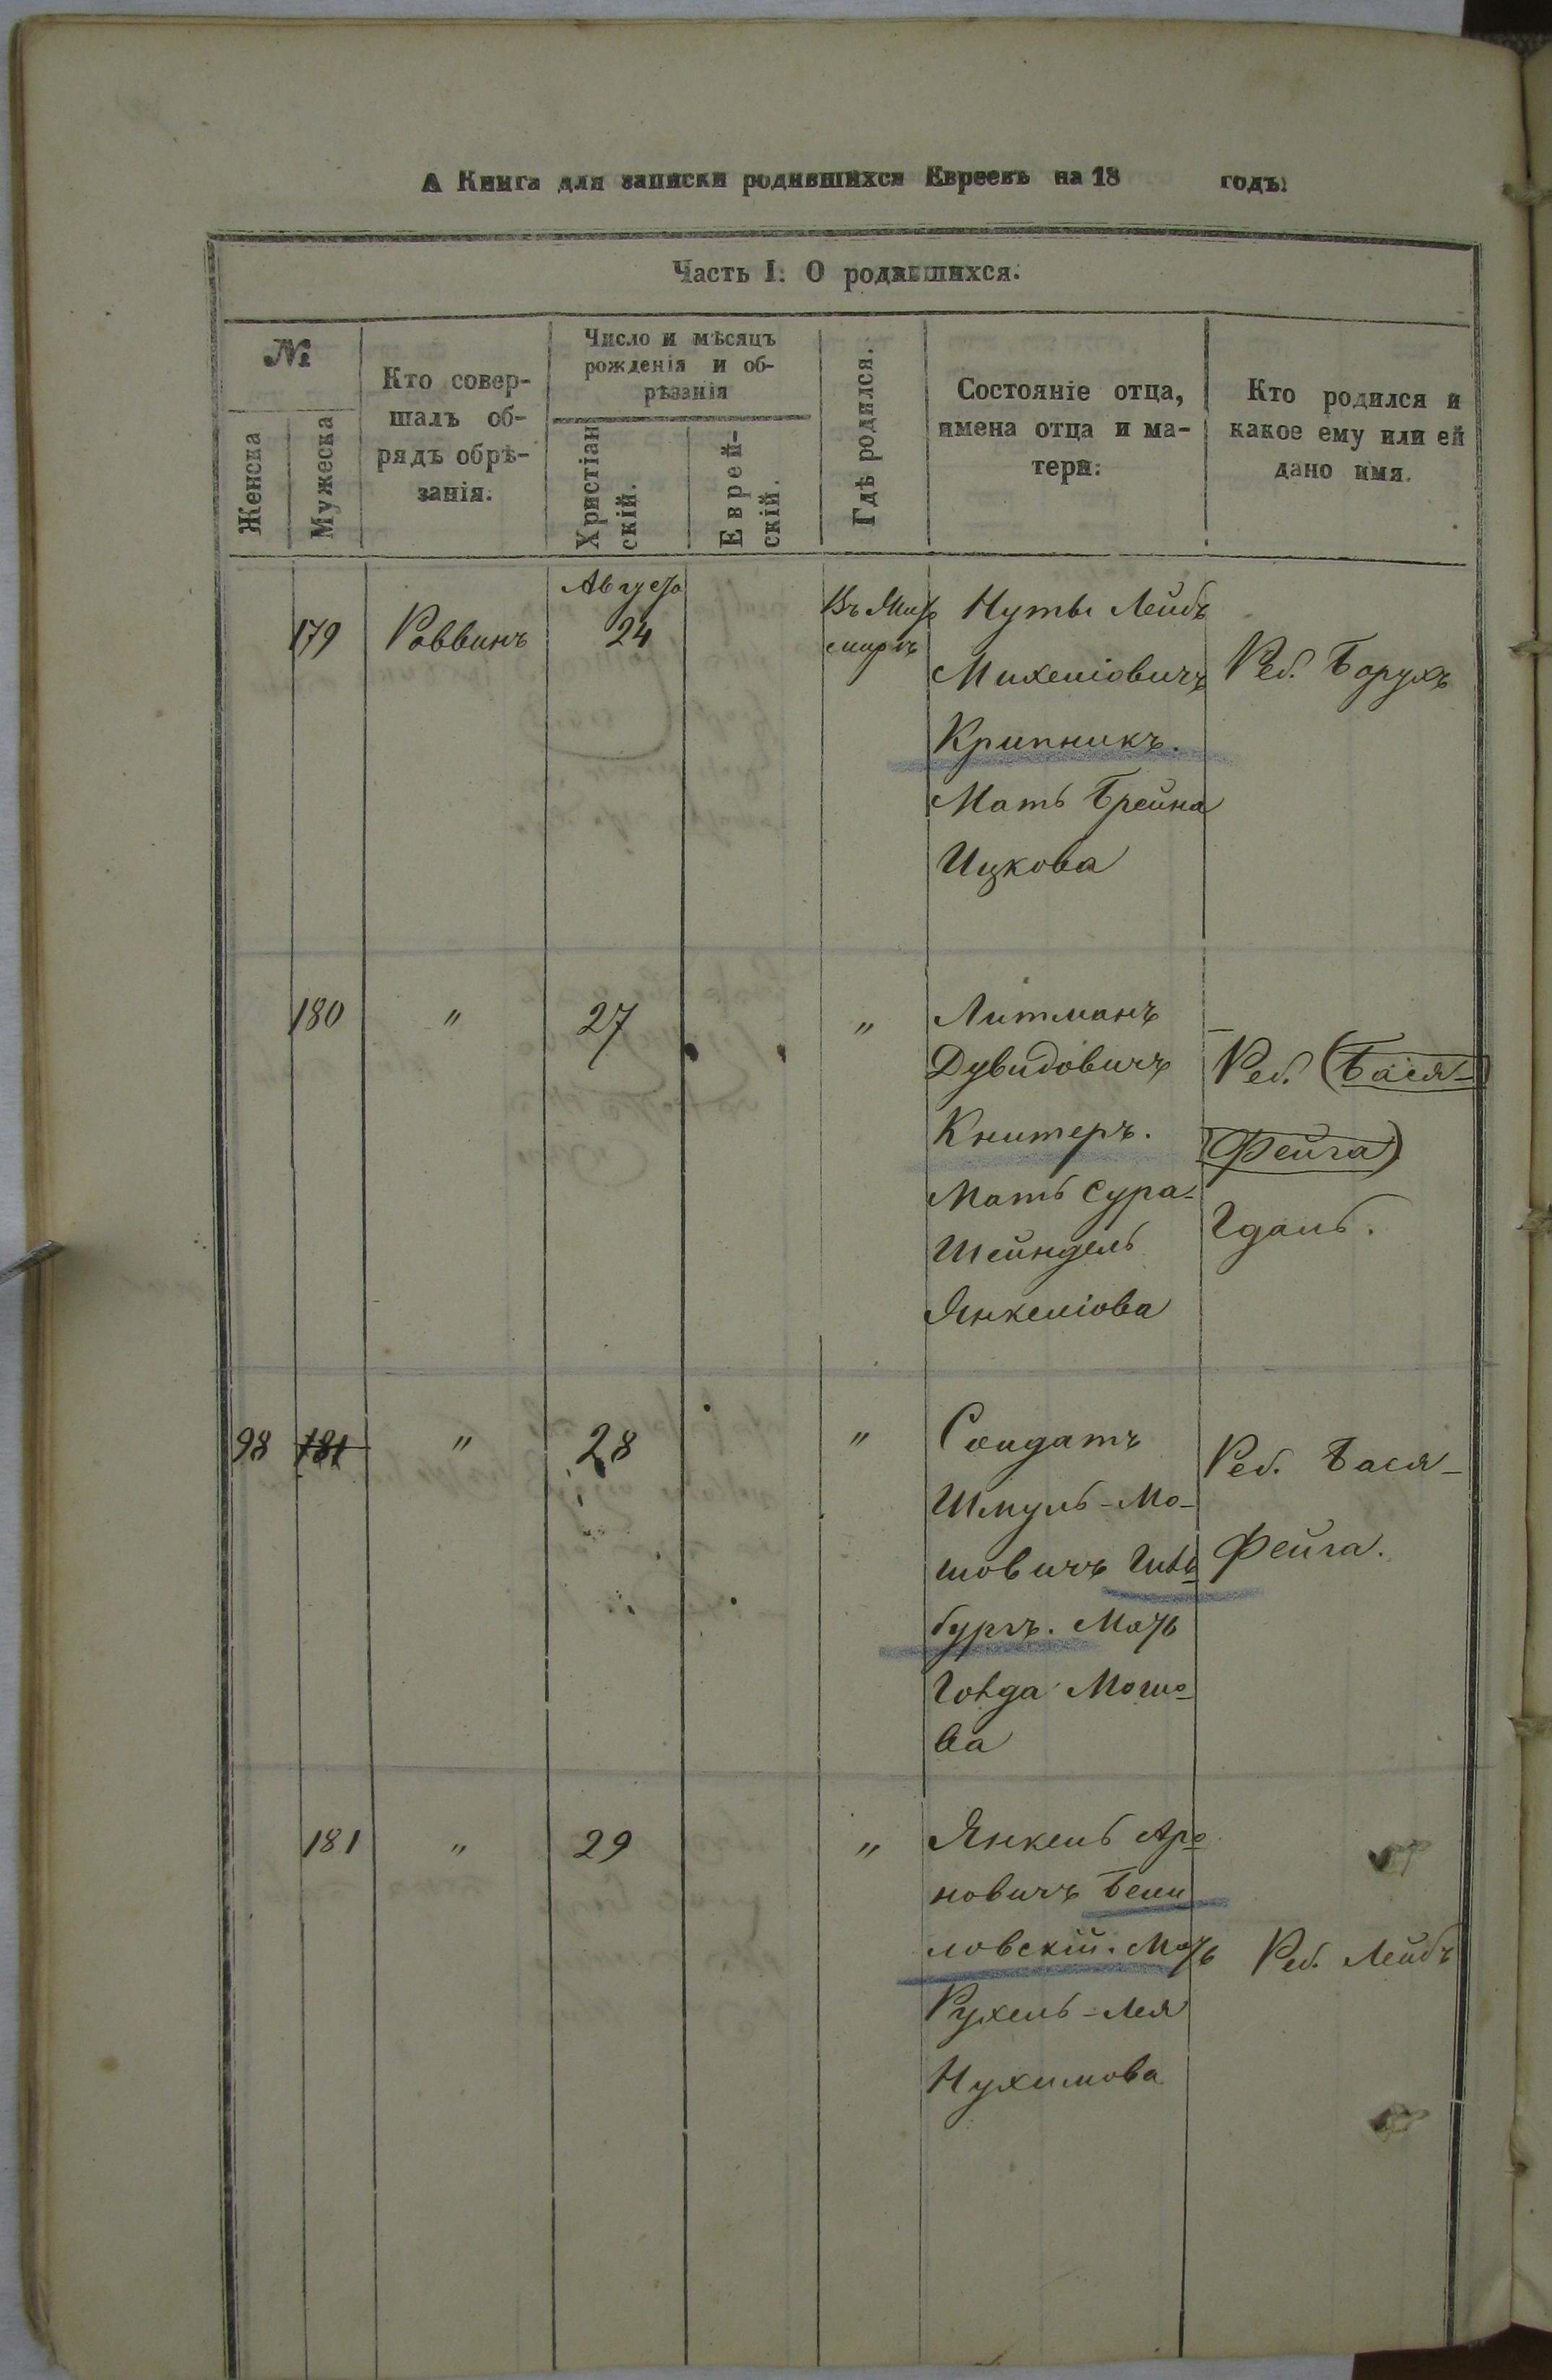 А Книга для записки родившихся Евреевъ на 18 годъ:
Часть I: О родившихся.
№
Женска
Мужеска
Кто совер-
шалъ об-
рядъ обрѣ-
занія.
Число и мѣсяцъ
рожденія и об-
рѣзанія
Христіан
скій.
Еврей-
скій.
Гдѣ родился.
Состояніе отца,
имена отца и ма-
тери:
Кто родился и
какое ему или ей
дано имя.
179
Раввинъ
Августа
24
Въ Жито
мирѣ
Нуты Лейбъ
Михеліовичъ
Крипникъ.
Мать Брейна
Ицкова
Реб. Борухъ
180
"
27
"
Литманъ
Дувидовичъ
Книтеръ.
Мать Сура-
Шейндель
Янкеліова
Реб. (Бася-
Фейга)
Гдаль.
98
181
"
28
"
Солдатъ
Шмуль-Мо-
шовичъ
бургъ. Мать
Голда Мошо-
ва
Реб. Бася-
Фейга.
181
"
29
"
Янкель Аро
новичъ Бели
ловскій. Мать
Рухель-Лея
Нухимова
Реб. Лейбъ